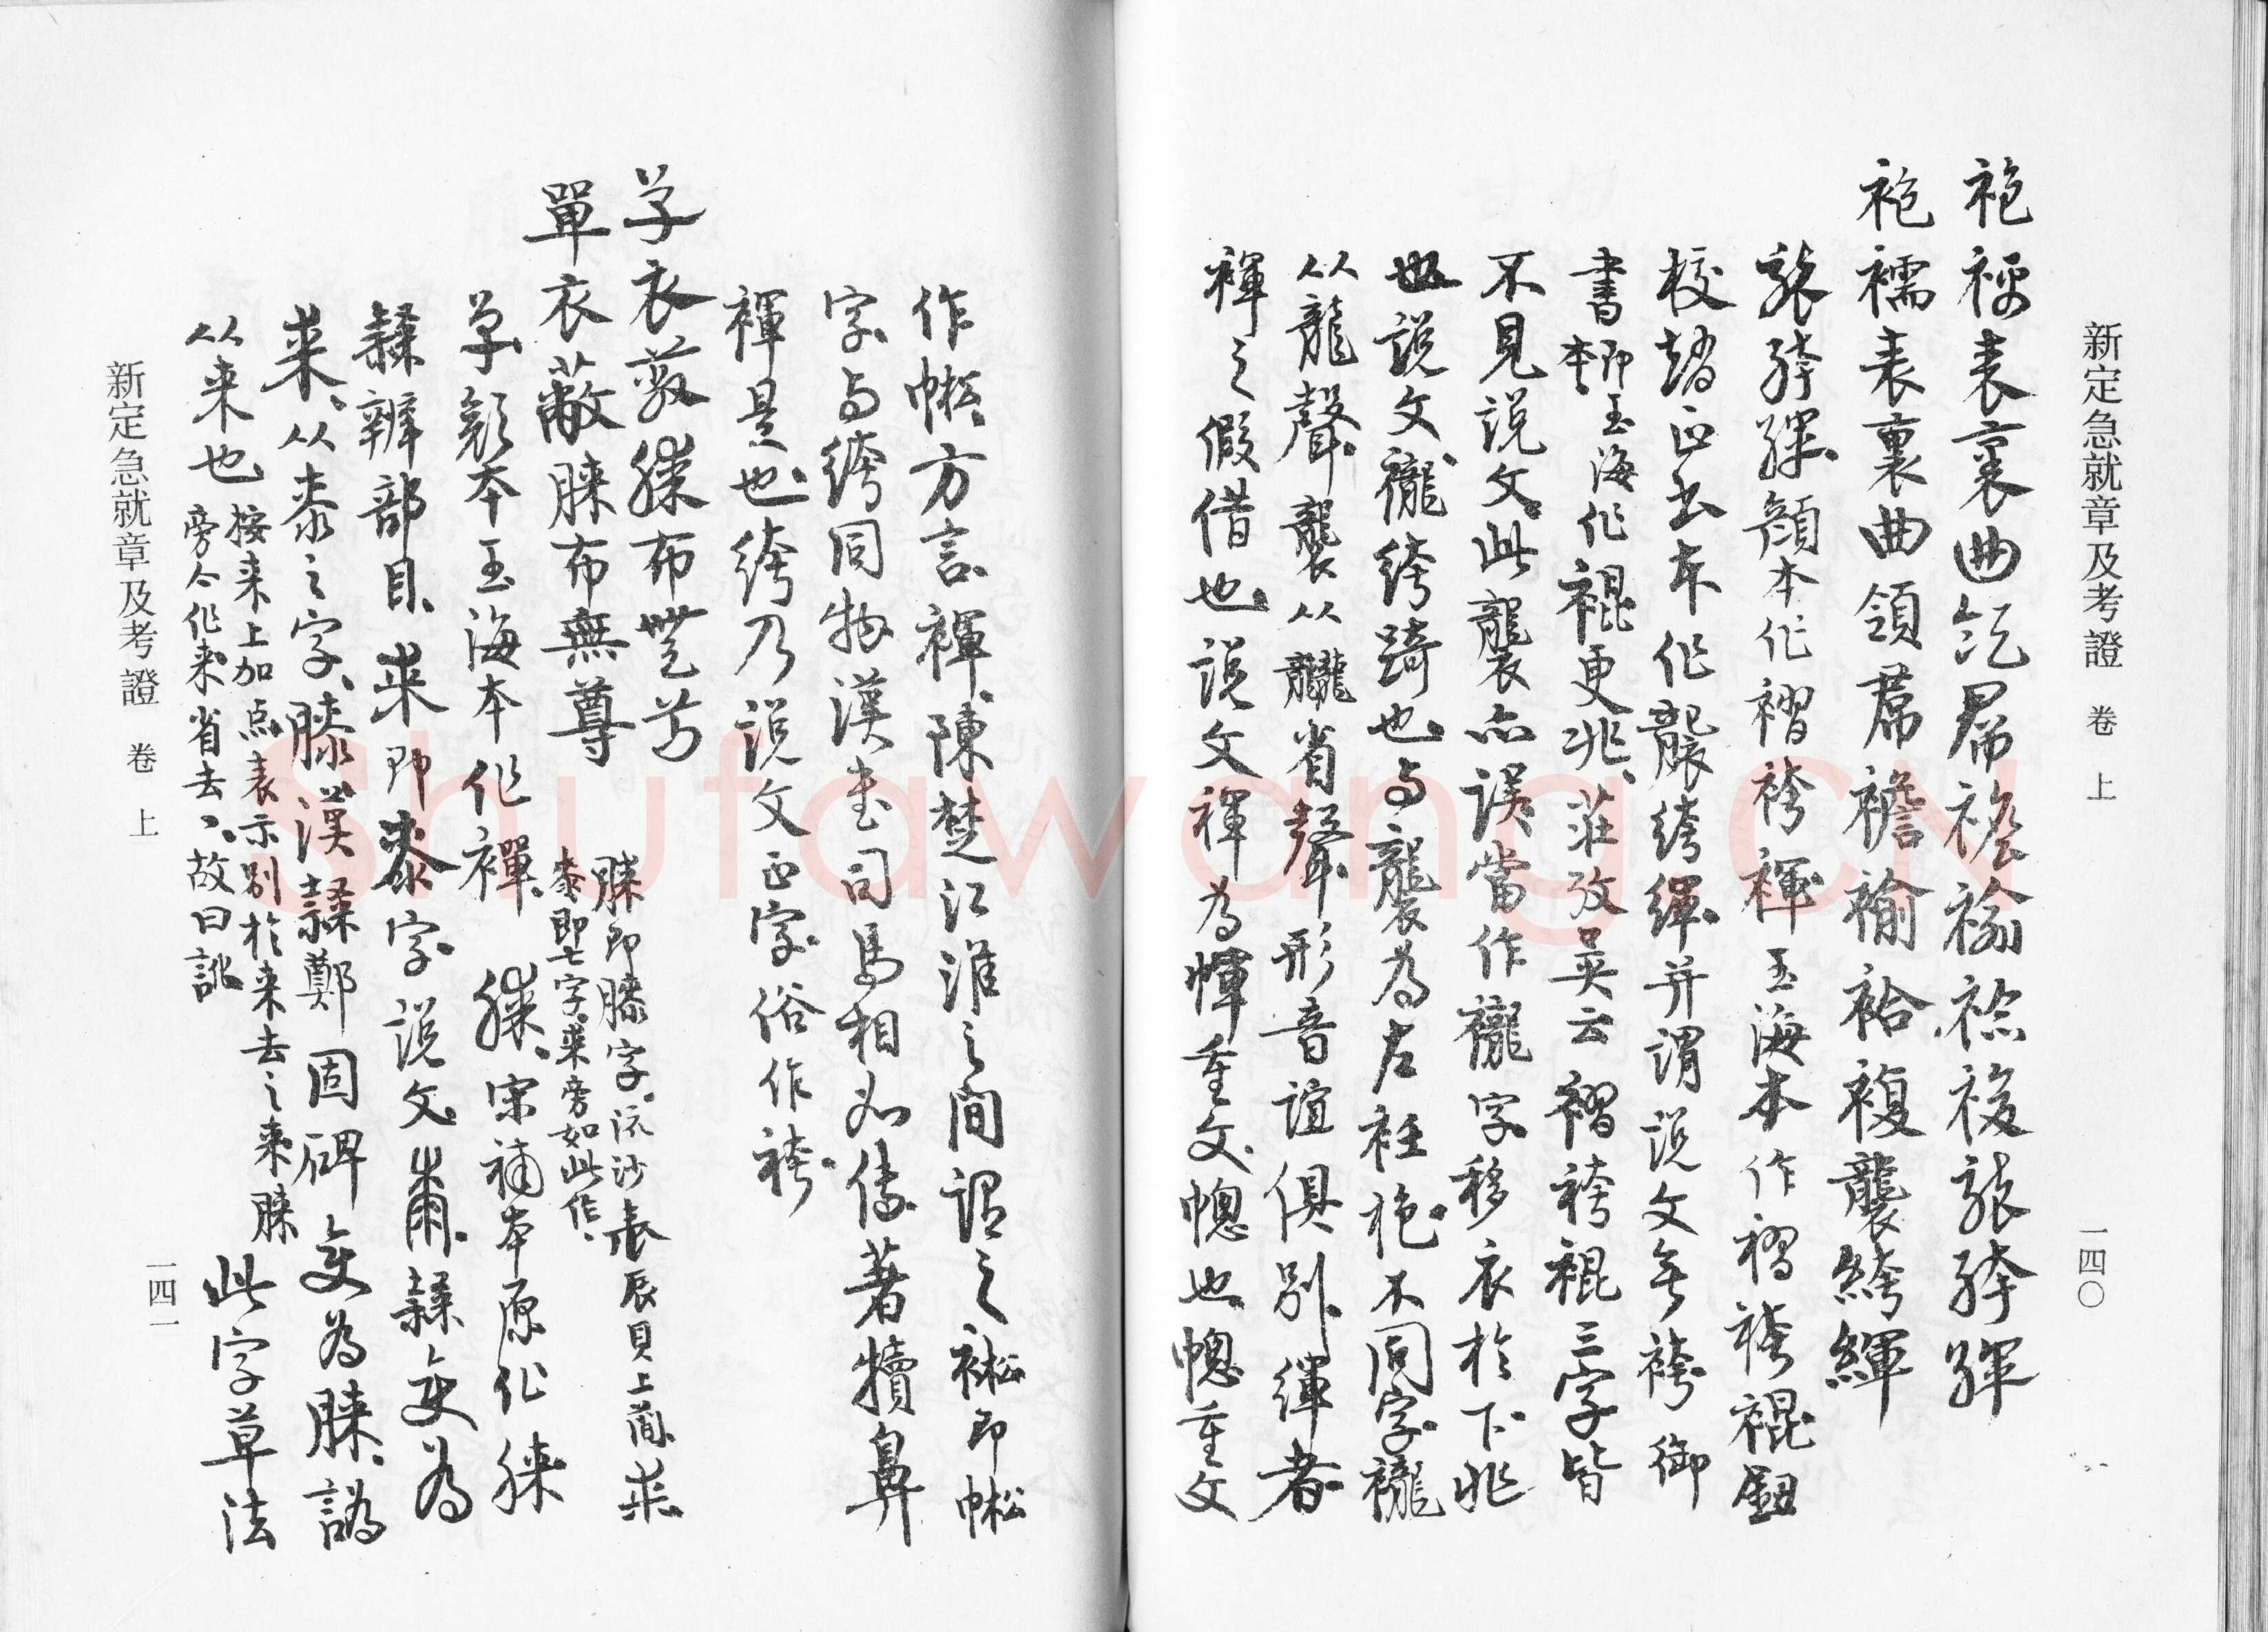 新定急就章及考證 卷上 一四〇
袍襦表裏曲領帬襜褕袷複襲絝緷
袍襦表裏曲領帬襜褕袷複襲絝緷
襲絝緷顏本作褶袴褌玉海本作褶袴裩鈕
校趙正書本作襲絝緷并謂說文無袴御
書本即玉海作裩更非莊攷吳云褶袴裩三字皆
不見說文此襲亦誤當作襱字移衣於下非
也說文襱絝踦也与襲為左衽袍不同字襱
从龍聲襲从龖省聲形音誼俱別緷者
褌之假借也說文褌為幝重文幒也幒重文
作㡓方言褌陳楚江淮之間謂之䘴即㡓
字与絝同物漢書司馬相如傳著犢鼻
褌是也絝乃說文正字俗作袴
單衣蔽膝布無尊
單衣蔽䐑布無尊
䐑即膝字流沙表辰頁上蕳桼
桼即七字来旁如此作
單顏本玉海本作襌膝宋補本原作䐑
隸辨部目来即桼字說文㡀隸變為
来从桼之字膝漢隸鄭固碑變為䐑譌
从来也
按来上加点表示別於来去之来䐑
旁今作来省去丶故曰譌
此字草法
新定急就章及考證 卷上 一四一